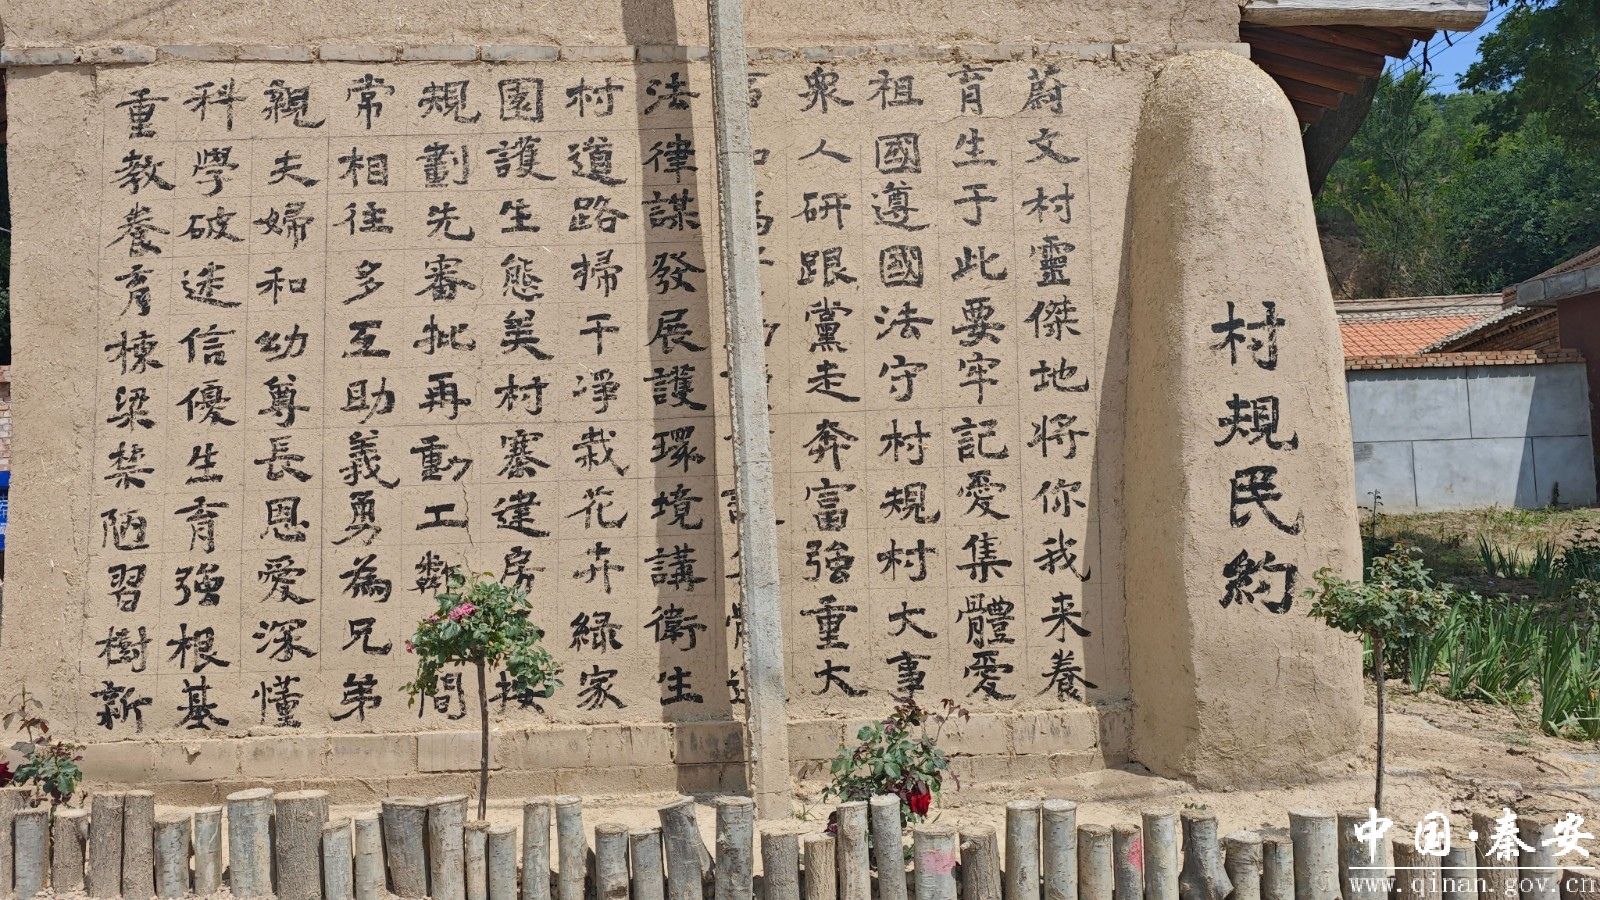 村規民約
蔚文村靈傑地將你我来養
育生于此要牢記愛集體愛
祖國遵國法守村規村大事
衆人研跟黨走奔富強重大
法律謀發展護環境講衛生
村道路掃干淨栽花卉綠家
園護生態美村寨建房按
規劃先審批再動工鄰間
常相往多互助義勇為兄弟
親夫婦和幼尊長恩愛深懂
科學破迷信優生育強根基
重教養育棟梁禁陋習樹新
中国·秦安
www.qinan.gov.cn